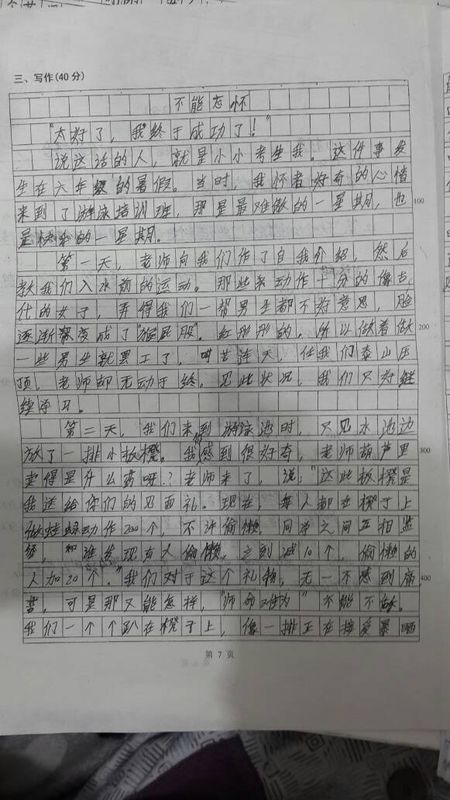 三、写作(40分)
不能忘怀
"太好了，我终于成功了！"
说这话的人，就是小小考生我。这件事发
生在六年级的暑假。当时，我怀着好奇的心情
来到了游泳培训班，那是最难做的一星期，也
是快乐的一星期。
100
第一天，老师向我们作了自我介绍，然后
教我们入水前的运动。那些动作十分的像古
代的女子，弄得我们一帮男生都不好意思，脸
逐渐变成了"猴屁股"。红彤彤的，所以做着做
200
一些男生就罢工了，叫苦连天，任我们泰山压
顶，老师却无动于终，见此状况，我们只好继
续学习。
第二天，我们来到游泳池时，只见水池边
放了一排小板凳。我感到很好奇，老师葫芦里
300
卖得是什么药呀？老师来了，说："这些板凳是
我送给你们的见面礼。现在，每人都在凳子上
做蛙蟝动作200个，不许偷懒。同学之间互相监
督，谁发现有人偷懒，立刻减10个，偷懒的
人加20个。"我们对于这个礼物，无一不感到痛
400
苦，可是那又能怎样，"师命难为"不能不做。
我们一个个趴在凳子上，像一排正在接受暴晒
第 7 页